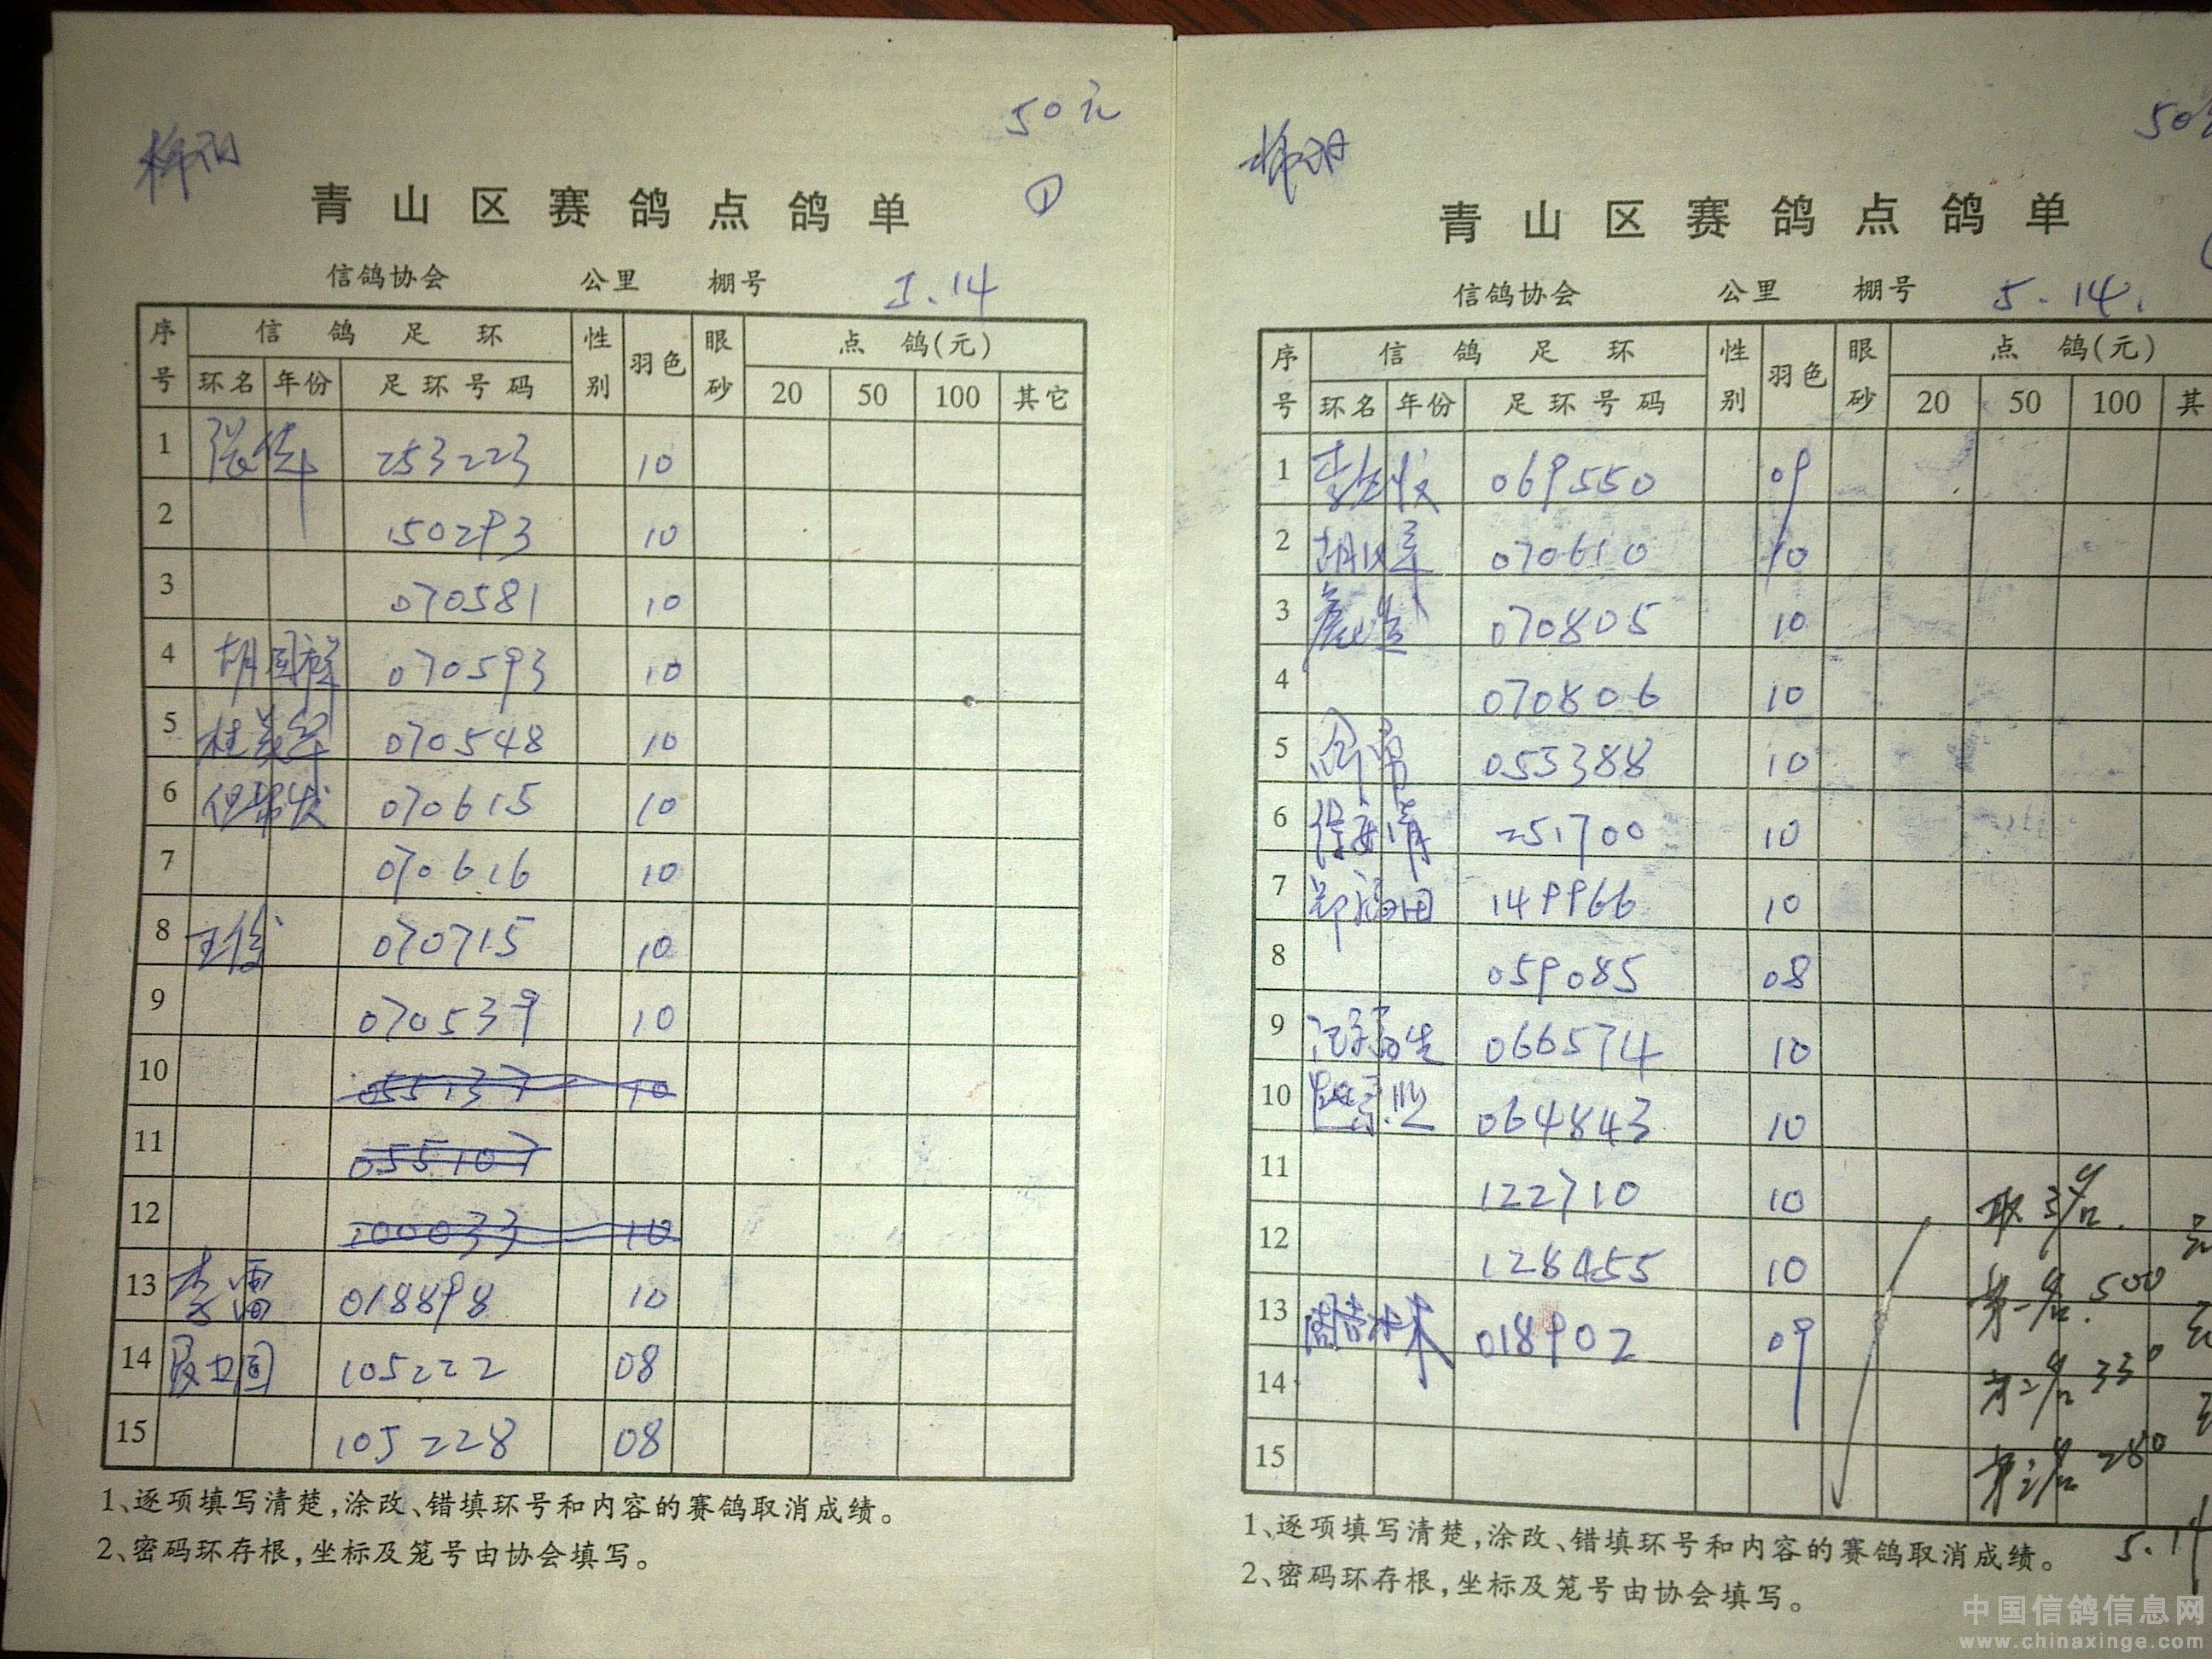 50元
①
青山区赛鸽点鸽单
信鸽协会 公里 棚号 5.14
序号 信鸽足环 性别 羽色 眼砂 点鸽(元)
环名 年份 足环号码 20 50 100 其它
1 张华 253223 10
2 150293 10
3 070581 10
4 胡国辉 070593 10
5 杜美军 070548 10
6 070615 10
7 070616 10
8 王俊 070715 10
9 070539 10
10 055137 10
11 055107
12 100033 10
13 李雷 018898 10
14 105222 08
15 105228 08
1、逐项填写清楚,涂改、错填环号和内容的赛鸽取消成绩。
2、密码环存根,坐标及笼号由协会填写。
50
青山区赛鸽点鸽单
信鸽协会 公里 棚号 5.14.
序号 信鸽足环 性别 羽色 眼砂 点鸽(元)
环名 年份 足环号码 20 50 100 其
1 069550 09
2 070610 10
3 070805 10
4 070806 10
5 053388 10
6 251700 10
7 郑福田 149966 10
8 059085 08
9 066574 10
10 064843 10
11 122710 10
12 128455 10
取3名.
13 018902 09
第一名.500
14
第二名 330
15
第三名 280
1、逐项填写清楚,涂改、错填环号和内容的赛鸽取消成绩。
2、密码环存根,坐标及笼号由协会填写。
中国信鸽信息网
www.chinaxinge.com